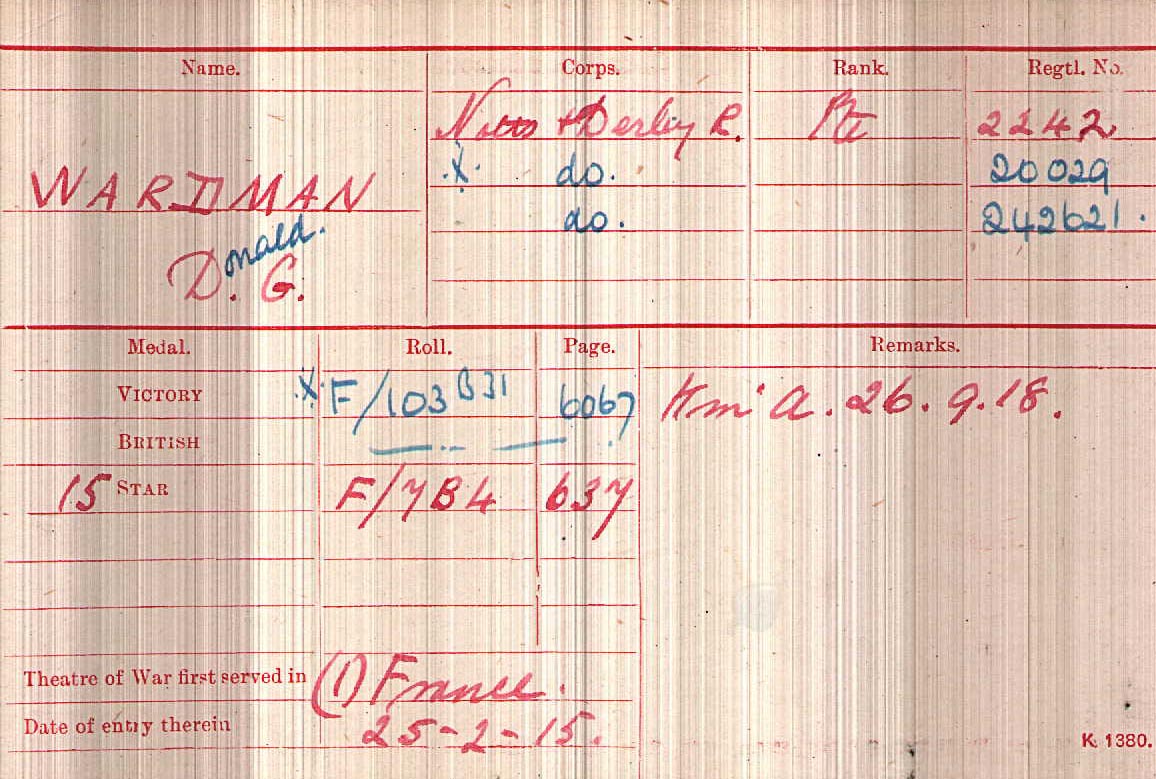 Name. Corps. Rank. Regtl. No.
Notts + Derby R. Pte 2242
WARDMAN X. do. 20029
do. 242621.
Donald.
D. G.
Medal. Roll. Page. Remarks.
VICTORY X F/103 B31 6067 K in A. 26.9.18.
BRITISH — " — " —
15 STAR F/7B4 637
Theatre of War first served in (1) France.
Date of entry therein 25-2-15.
K. 1380.